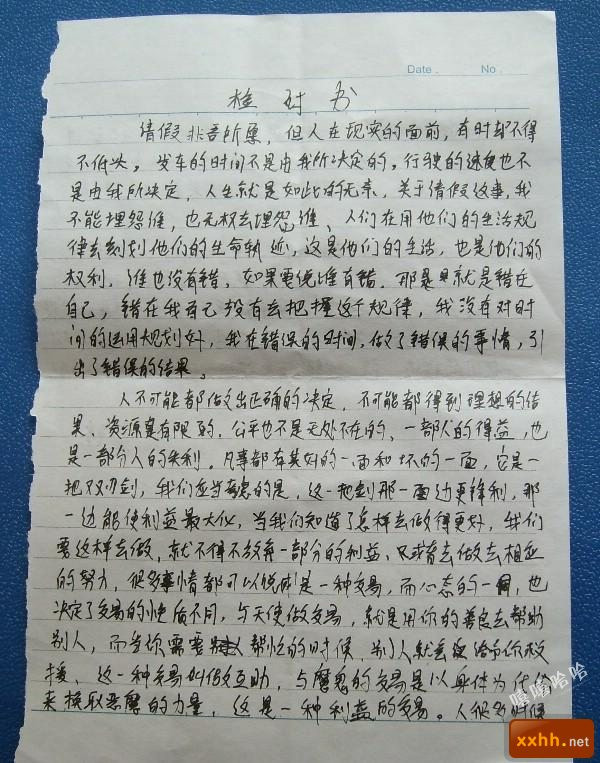 Date. No.
检讨书
请假非吾所愿,但人在现实的面前,有时却不得
不低头。发车的时间不是由我所决定的,行驶的速度也不
是由我所决定,人生就是如此的无奈,关于请假这事,我
不能埋怨谁,也无权去埋怨谁、人们在用他们的生活规
律去刻划他们的生命轨迹,这是他们的生活,也是他们的
权利,谁也没有错,如果要说谁有错,那就是错在
自己,错在我自己没有去把握这个规律,我没有对时
间的运用规划好,我在错误的时间,做了错误的事情,引
出了错误的结果。
人不可能都做出正确的决定,不可能都得到理想的结
果、资源是有限的,公平也不是无处不在的、一部分人的得益,也
是一部分人的失利。凡事都有其好的一面和坏的一面,它是一
把双刃剑,我们应当考虑的是,这一把剑那一面边更锋利,那
一边能使利益最大化,当我们知道了怎样去做得更好,我们
要这样去做,就不得不放弃一部分的利益、只有去做去相应
的努力,很多事情都可以说成是一种交易,而心态的一,也
决定了交易的性质不同,与天使做交易,就是用你的善良去帮助
别人,而当你需要帮忙的时候,别人就会给你救
援、这一种交易叫做互助,与魔鬼的交易是以身体为代价
来换取恶魔的力量,这是一种利益的交易。人很多时候
嘎嘎哈哈
xxhh.net